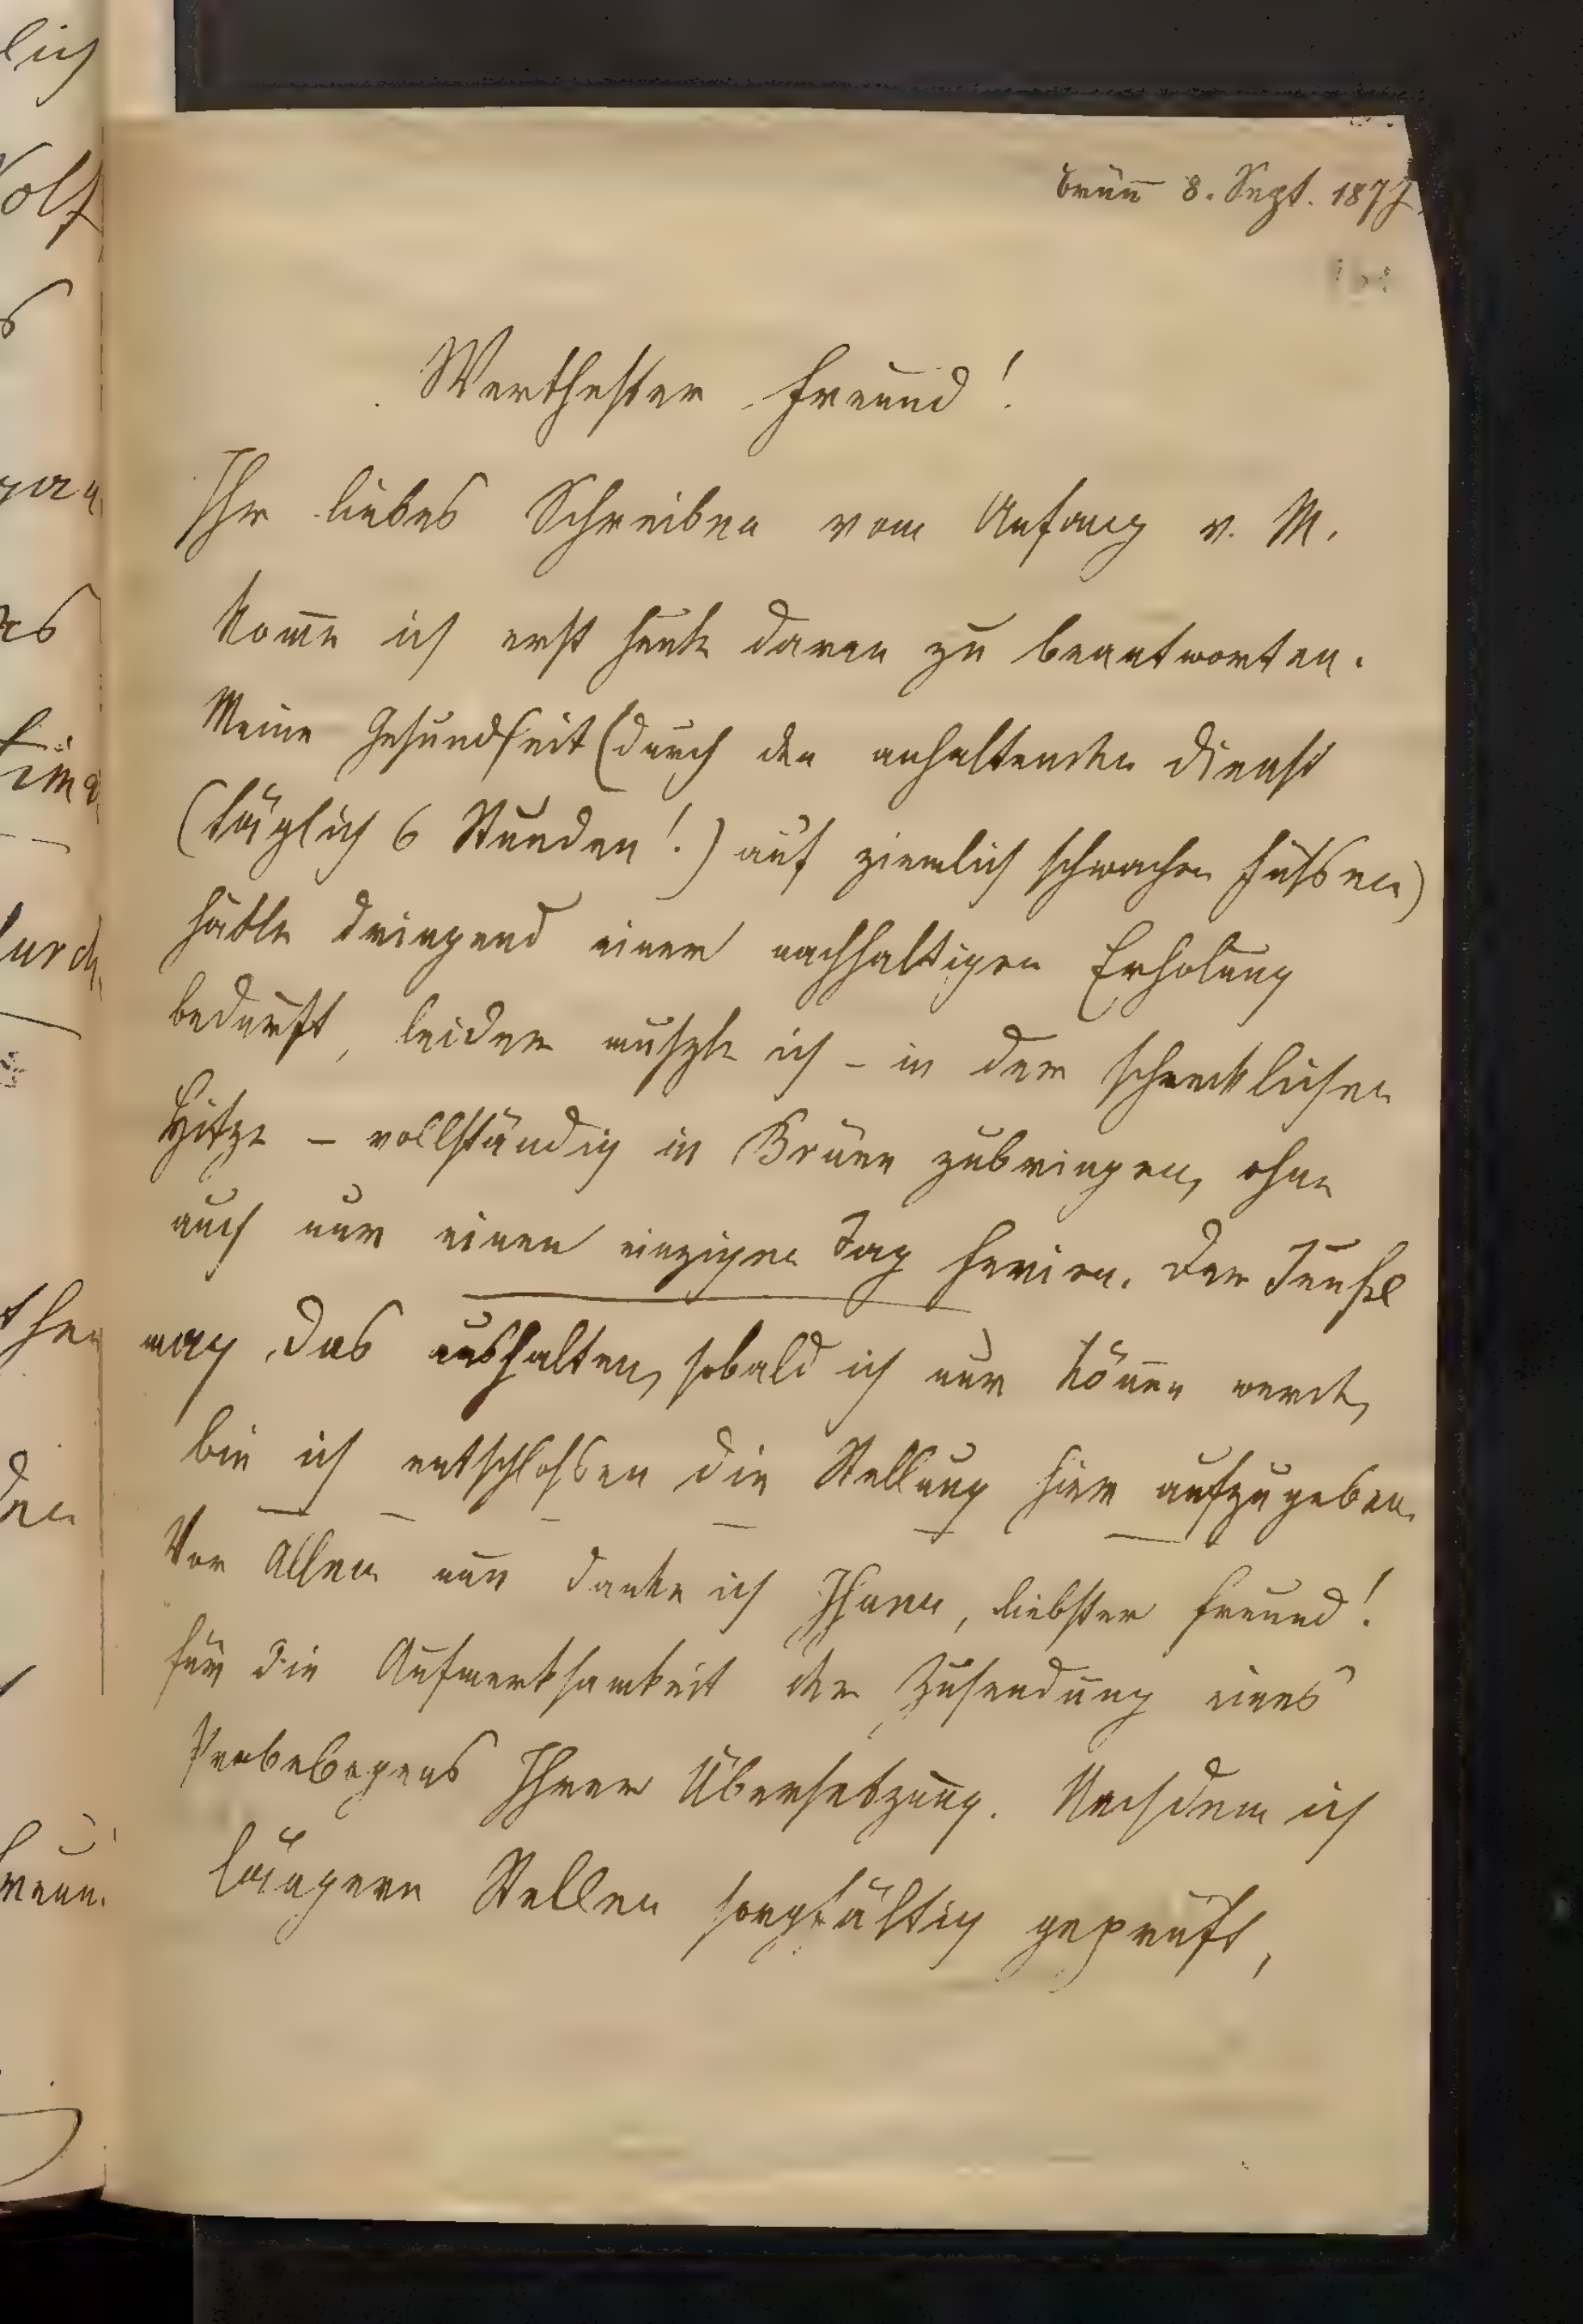 Brün̄ 8. Sept. 1877.
Werthester Freund!
Ihr liebes Schreiben vom Anfang v. M.
kom̄e ich erst heute daran zu beantworten.
Meine Gesundheit (durch den anhaltenden Dienst
(täglich 6 Stunden!) auf ziemlich schwachen Füssen)
hätte dringend einer nachhaltigen Erholung
bedurft, leider muszte ich – in der schrecklichen
Hitze – vollständig in Brünn zubringen, ohne
auch nur einen einzigen Tag Ferien. Der Teufel
mag das aushalten, sobald ich nur kön̄en werde,
bin ich entschlossen die Stellung hier aufzugeben.
Vor Allen nun danke ich Ihnen, liebster Freund!
für die Aufmerksamkeit der Zusendung eines
Probebogens Ihrer Übersetzung. Nachdem ich
längere Stellen sorgfältig geprüft,